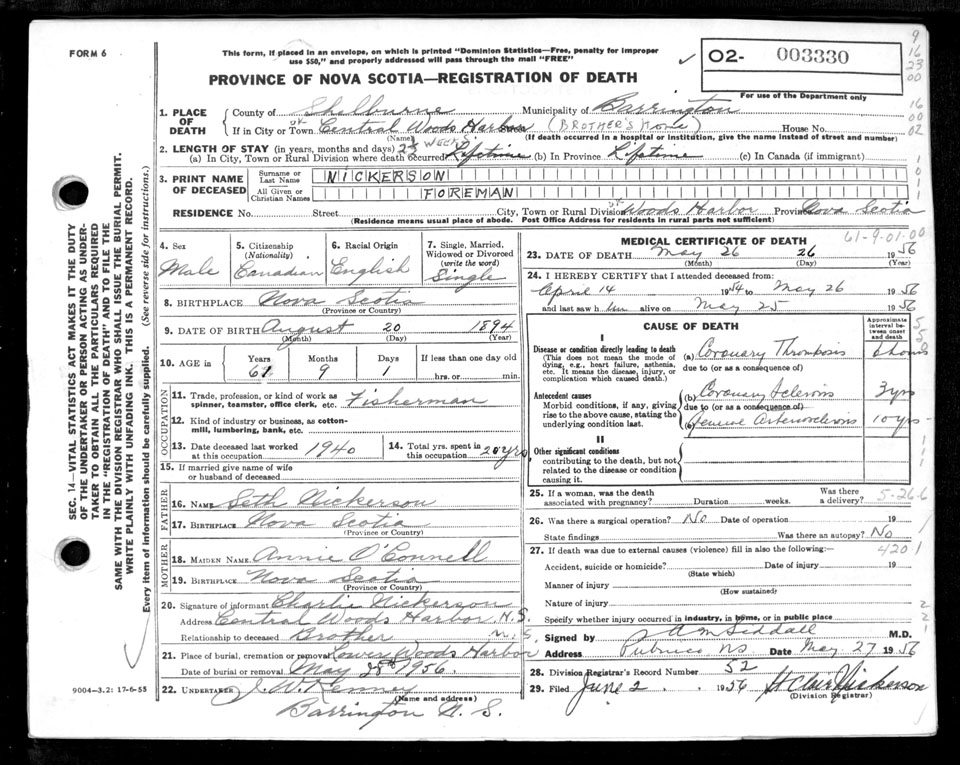 FORM 6
This form, if placed in an envelope, on which is printed "Dominion Statistics—Free, penalty for improper
use $50," and properly addressed will pass through the mail "FREE"
PROVINCE OF NOVA SCOTIA—REGISTRATION OF DEATH
02- 003330
For use of the Department only
9
16
23
00
16
00
02
1. PLACE OF DEATH
County of Shelburne Municipality of Barrington
If in City or Town Central Woods Harbor (BROTHER'S HOME) House No.
(Name) (If death occurred in a hospital or institution, give the name instead of street and number)
2. LENGTH OF STAY (in years, months and days) WEEKS
(a) In City, Town or Rural Division where death occurred Lifetime (b) In Province Lifetime (c) In Canada (if immigrant)
3. PRINT NAME OF DECEASED
Surname or Last Name NICKERSON
All Given or Christian Names FOREMAN
RESIDENCE No. Street City, Town or Rural Division Woods Harbor Province Nova Scotia
(Residence means usual place of abode. Post Office Address for residents in rural parts not sufficient)
4. Sex Male
5. Citizenship (Nationality) Canadian
6. Racial Origin English
7. Single, Married, Widowed or Divorced (write the word) Single
8. BIRTHPLACE Nova Scotia
(Province or Country)
9. DATE OF BIRTH August 20 1894
(Month) (Day) (Year)
10. AGE in Years 61 Months 9 Days 1 If less than one day old hrs. or min.
OCCUPATION
11. Trade, profession, or kind of work as spinner, teamster, office clerk, etc. Fisherman
12. Kind of industry or business, as cotton-mill, lumbering, bank, etc.
13. Date deceased last worked at this occupation 1940
14. Total yrs. spent in this occupation 20 yrs
15. If married give name of wife or husband of deceased
FATHER
16. NAME Seth Nickerson
17. BIRTHPLACE Nova Scotia
(Province or Country)
MOTHER
18. MAIDEN NAME Annie O'Connell
19. BIRTHPLACE Nova Scotia
(Province or Country)
20. Signature of informant Charlie Nickerson
Address Central Woods Harbor N.S.
Relationship to deceased Brother N.S.
21. Place of burial, cremation or removal Lower Woods Harbor
Date of burial or removal May 28th 1956.
22. UNDERTAKER J. W. Kenney
(Name and address)
Barrington N. S.
9004-3.2: 17-6-55
MEDICAL CERTIFICATE OF DEATH
61-9-01-00
23. DATE OF DEATH May 26 26 1956
(Month) (Day) (Year)
24. I HEREBY CERTIFY that I attended deceased from:
April 14 1954 to May 26 1956
and last saw him alive on May 25 1956
CAUSE OF DEATH
Approximate interval between onset and death
I
Disease or condition directly leading to death
(This does not mean the mode of dying, e.g., heart failure, asthenia, etc. It means the disease, injury, or complication which caused death.)
(a) Coronary Thrombosis hours
due to (or as a consequence of)
Antecedent causes
Morbid conditions, if any, giving rise to the above cause, stating the underlying condition last.
(b) Coronary Sclerosis 3 yrs
due to (or as a consequence of)
(c) Arteriosclerosis 10 yrs
II
Other significant conditions
contributing to the death, but not related to the disease or condition causing it.
25. If a woman, was the death associated with pregnancy? Duration weeks. Was there a delivery?
5-26-6
26. Was there a surgical operation? No Date of operation 19
State findings Was there an autopsy? No
27. If death was due to external causes (violence) fill in also the following:—
4201
Accident, suicide or homicide? Date of injury 19
(State which)
Manner of injury
(How sustained)
Nature of injury
Specify whether injury occurred in industry, in home, or in public place
Signed by A M Siddall M.D.
Address Pubnico NS Date May 27 1956
28. Division Registrar's Record Number 52
29. Filed June 2 1956 St Clair Nickerson
(Division Registrar)
SEC. 14—VITAL STATISTICS ACT MAKES IT THE DUTY
OF THE UNDERTAKER OR PERSON ACTING AS UNDER-
TAKER TO OBTAIN ALL THE PARTICULARS REQUIRED
IN THE "REGISTRATION OF DEATH" AND TO FILE THE
SAME WITH THE DIVISION REGISTRAR WHO SHALL ISSUE THE BURIAL PERMIT.
WRITE PLAINLY WITH UNFADING INK. THIS IS A PERMANENT RECORD.
Every item of information should be carefully supplied. (See reverse side for instructions.)